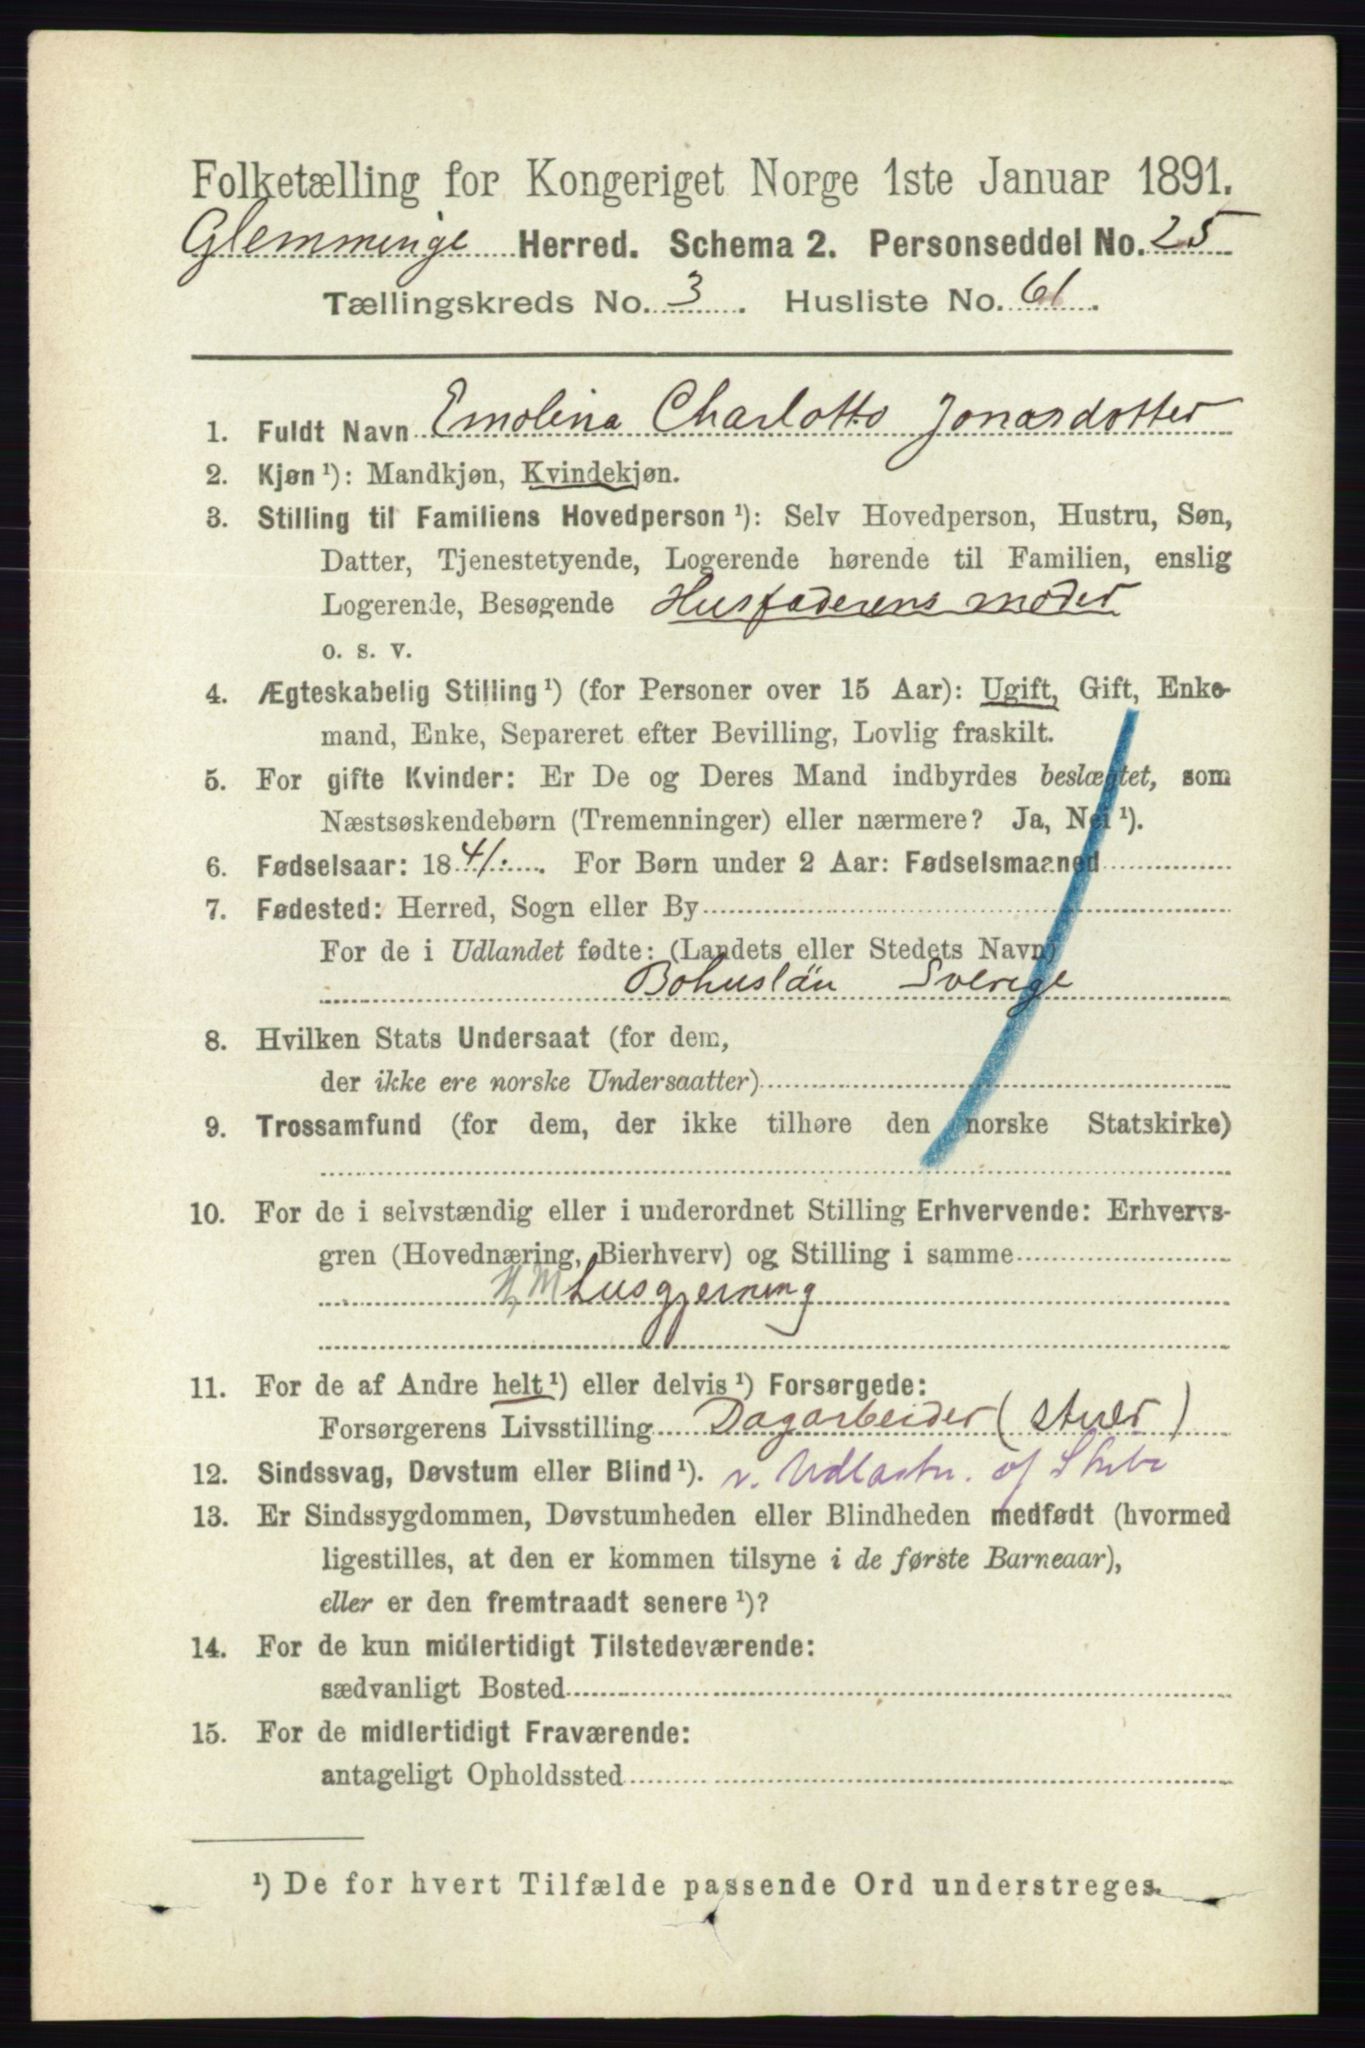 Folketælling for Kongeriget Norge 1ste Januar 1891.
Glemminge Herred. Schema 2. Personseddel No. 25
Tællingskreds No. 3. Husliste No. 61.
1. Fuldt Navn Emolina Charlotte Jonasdotter
2. Kjøn ¹): Mandkjøn, Kvindekjøn.
3. Stilling til Familiens Hovedperson ¹): Selv Hovedperson, Hustru, Søn,
Datter, Tjenestetyende, Logerende hørende til Familien, enslig
Logerende, Besøgende Husfaderens moder
o. s. v.
4. Ægteskabelig Stilling ¹) (for Personer over 15 Aar): Ugift, Gift, Enke-
mand, Enke, Separeret efter Bevilling, Lovlig fraskilt.
5. For gifte Kvinder: Er De og Deres Mand indbyrdes beslægtet, som
Næstsøskendebørn (Tremenninger) eller nærmere? Ja, Nei ¹).
6. Fødselsaar: 1841. For Børn under 2 Aar: Fødselsmaaned
7. Fødested: Herred, Sogn eller By
For de i Udlandet fødte: (Landets eller Stedets Navn)
Bohuslän Sverige
8. Hvilken Stats Undersaat (for dem,
der ikke ere norske Undersaatter)
9. Trossamfund (for dem, der ikke tilhøre den norske Statskirke)
10. For de i selvstændig eller i underordnet Stilling Erhvervende: Erhvervs-
gren (Hovednæring, Bierhverv) og Stilling i samme
Husgjerning
11. For de af Andre helt ¹) eller delvis ¹) Forsørgede:
Forsørgerens Livsstilling Dagarbeider (stuer)
12. Sindssvag, Døvstum eller Blind ¹). v. Udlastn. af Skibe
13. Er Sindssygdommen, Døvstumheden eller Blindheden medfødt (hvormed
ligestilles, at den er kommen tilsyne i de første Barneaar),
eller er den fremtraadt senere ¹)?
14. For de kun midlertidigt Tilstedeværende:
sædvanligt Bosted
15. For de midlertidigt Fraværende:
antageligt Opholdssted
¹) De for hvert Tilfælde passende Ord understreges.